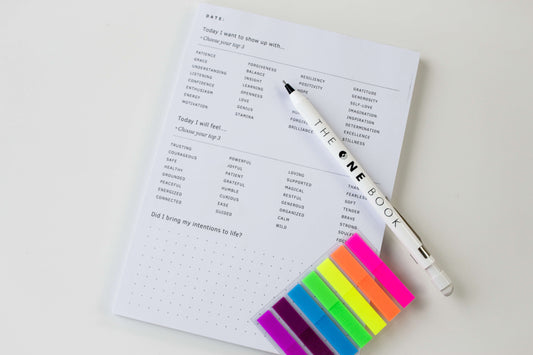 DATE:
Today I want to show up with...
~Choose your top 3
PATIENCE
GRACE
UNDERSTANDING
LISTENING
CONFIDENCE
ENTHUSIASM
ENERGY
MOTIVATION
FORGIVENESS
BALANCE
INSIGHT
LEARNING
OPENNESS
LOVE
GENIUS
STAMINA
RESILIENCY
POSITIVITY
BRILLIANCE
GRATITUDE
GENEROSITY
SELF-LOVE
IMAGINATION
INSPIRATION
DETERMINATION
EXCELLENCE
STILLNESS
Today I will feel...
~Choose your top 3
TRUSTING
COURAGEOUS
SAFE
HEALTHY
GROUNDED
PEACEFUL
ENERGIZED
CONNECTED
POWERFUL
JOYFUL
PATIENT
GRATEFUL
HUMBLE
CURIOUS
EASE
GUIDED
LOVING
SUPPORTED
MAGICAL
RESTFUL
GENEROUS
ORGANIZED
CALM
WILD
SOFT
TENDER
BRAVE
STRONG
Did I bring my intentions to life?
THE ONE BOOK